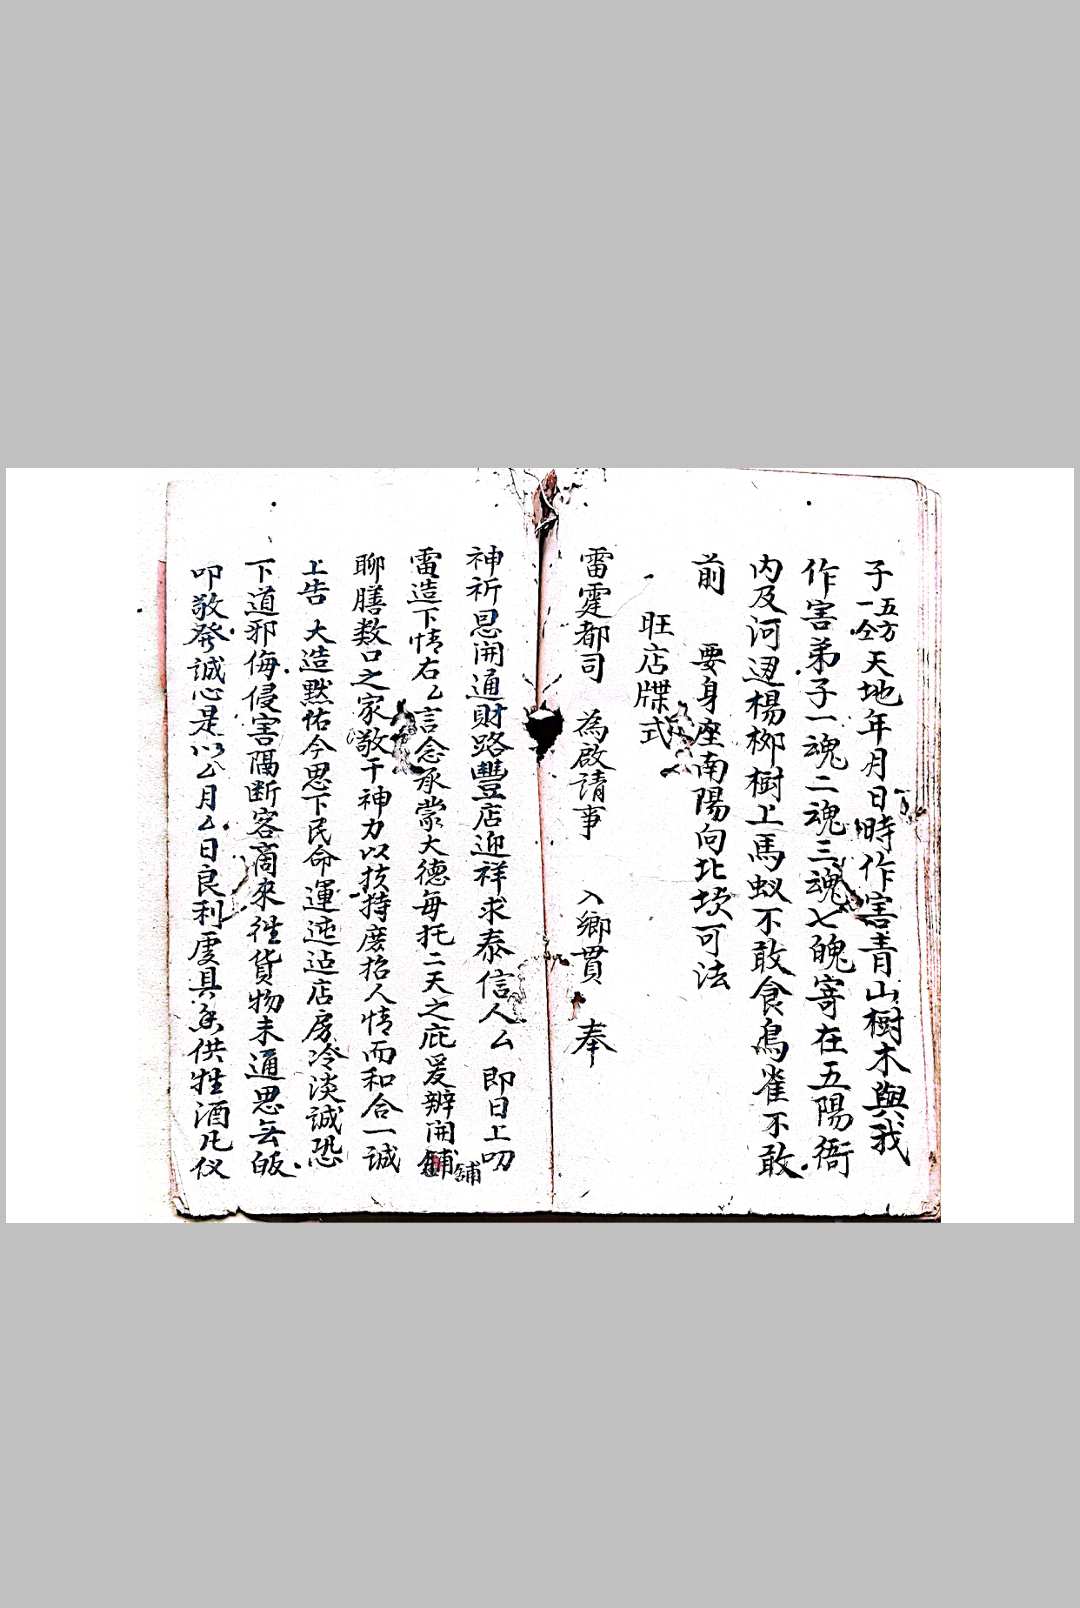 子一五方仝天地年月日時作害青山樹木與我
作害弟子一魂二魂三魂七魄寄在五陽衙
内及河边楊柳樹上馬蚁不敢食鳥雀不敢
前 要身座南陽向北坎可法
一 旺店牒式
雷霆都司 為啟請事 入鄉貫 奉
神祈恩開通財路豐店迎祥求泰信人厶即日上叩
雷造下情右乙言念承蒙大德每托二天之庇爰辦開舖舖
聊膳数口之家敬干神力以扶持庶招人情而和合一誠
上告大造黙佑今思下民命運迍邅店房冷淡誠恐
下道邪侮侵害隔断客商來徃貨物未通思無皈
叩敬發誠心是以厶月乙日良利虔具香供牲酒凡仪